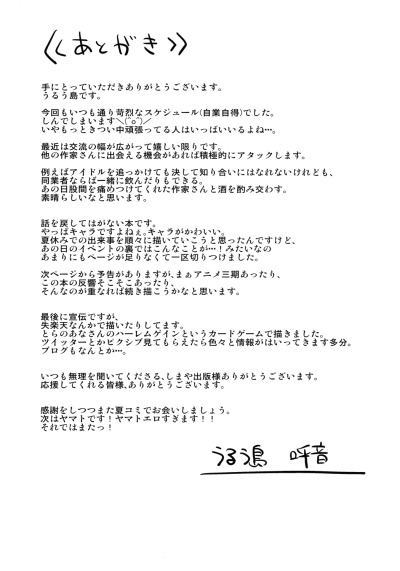 《《あとがき》》
手にとっていただきありがとうございます。
うるう島です。
今回もいつも通り苛烈なスケジュール(自業自得)でした。
しんでしまいます＼(^o^)／
いやもっときつい中頑張ってる人はいっぱいいるよね…。
最近は交流の幅が広がって嬉しい限りです。
他の作家さんに出会える機会があれば積極的にアタックします。
例えばアイドルを追っかけても決して知り合いにはなれないけれども、
同業者ならば一緒に飲んだりもできる。
あの日股間を痛めつけてくれた作家さんと酒を酌み交わす。
素晴らしいなと思います。
話を戻してはがない本です。
やっぱキャラですよねぇ。キャラがかわいい。
夏休みでの出来事を順々に描いていこうと思ったんですけど、
あの日のイベントの裏ではこんなことが…！みたいなの
あまりにもページが足りなくて一区切りつけました。
次ページから予告がありますが、まぁアニメ三期あったり、
この本の反響そこそこあったり、
そんなのが重なれば続き描こうかなと思います。
最後に宣伝ですが、
失楽天なんかで描いたりしてます。
とらのあなさんのハーレムゲインというカードゲームで描きました。
ツイッターとかピクシブ見てもらえたら色々と情報がはいってきます多分。
ブログもなんとか…。
いつも無理を聞いてくださる、しまや出版様ありがとうございます。
応援してくれる皆様、ありがとうございます。
感謝をしつつまた夏コミでお会いしましょう。
次はヤマトです！ヤマトエロすぎます！！
それではまたっ！
うるう島 呼音